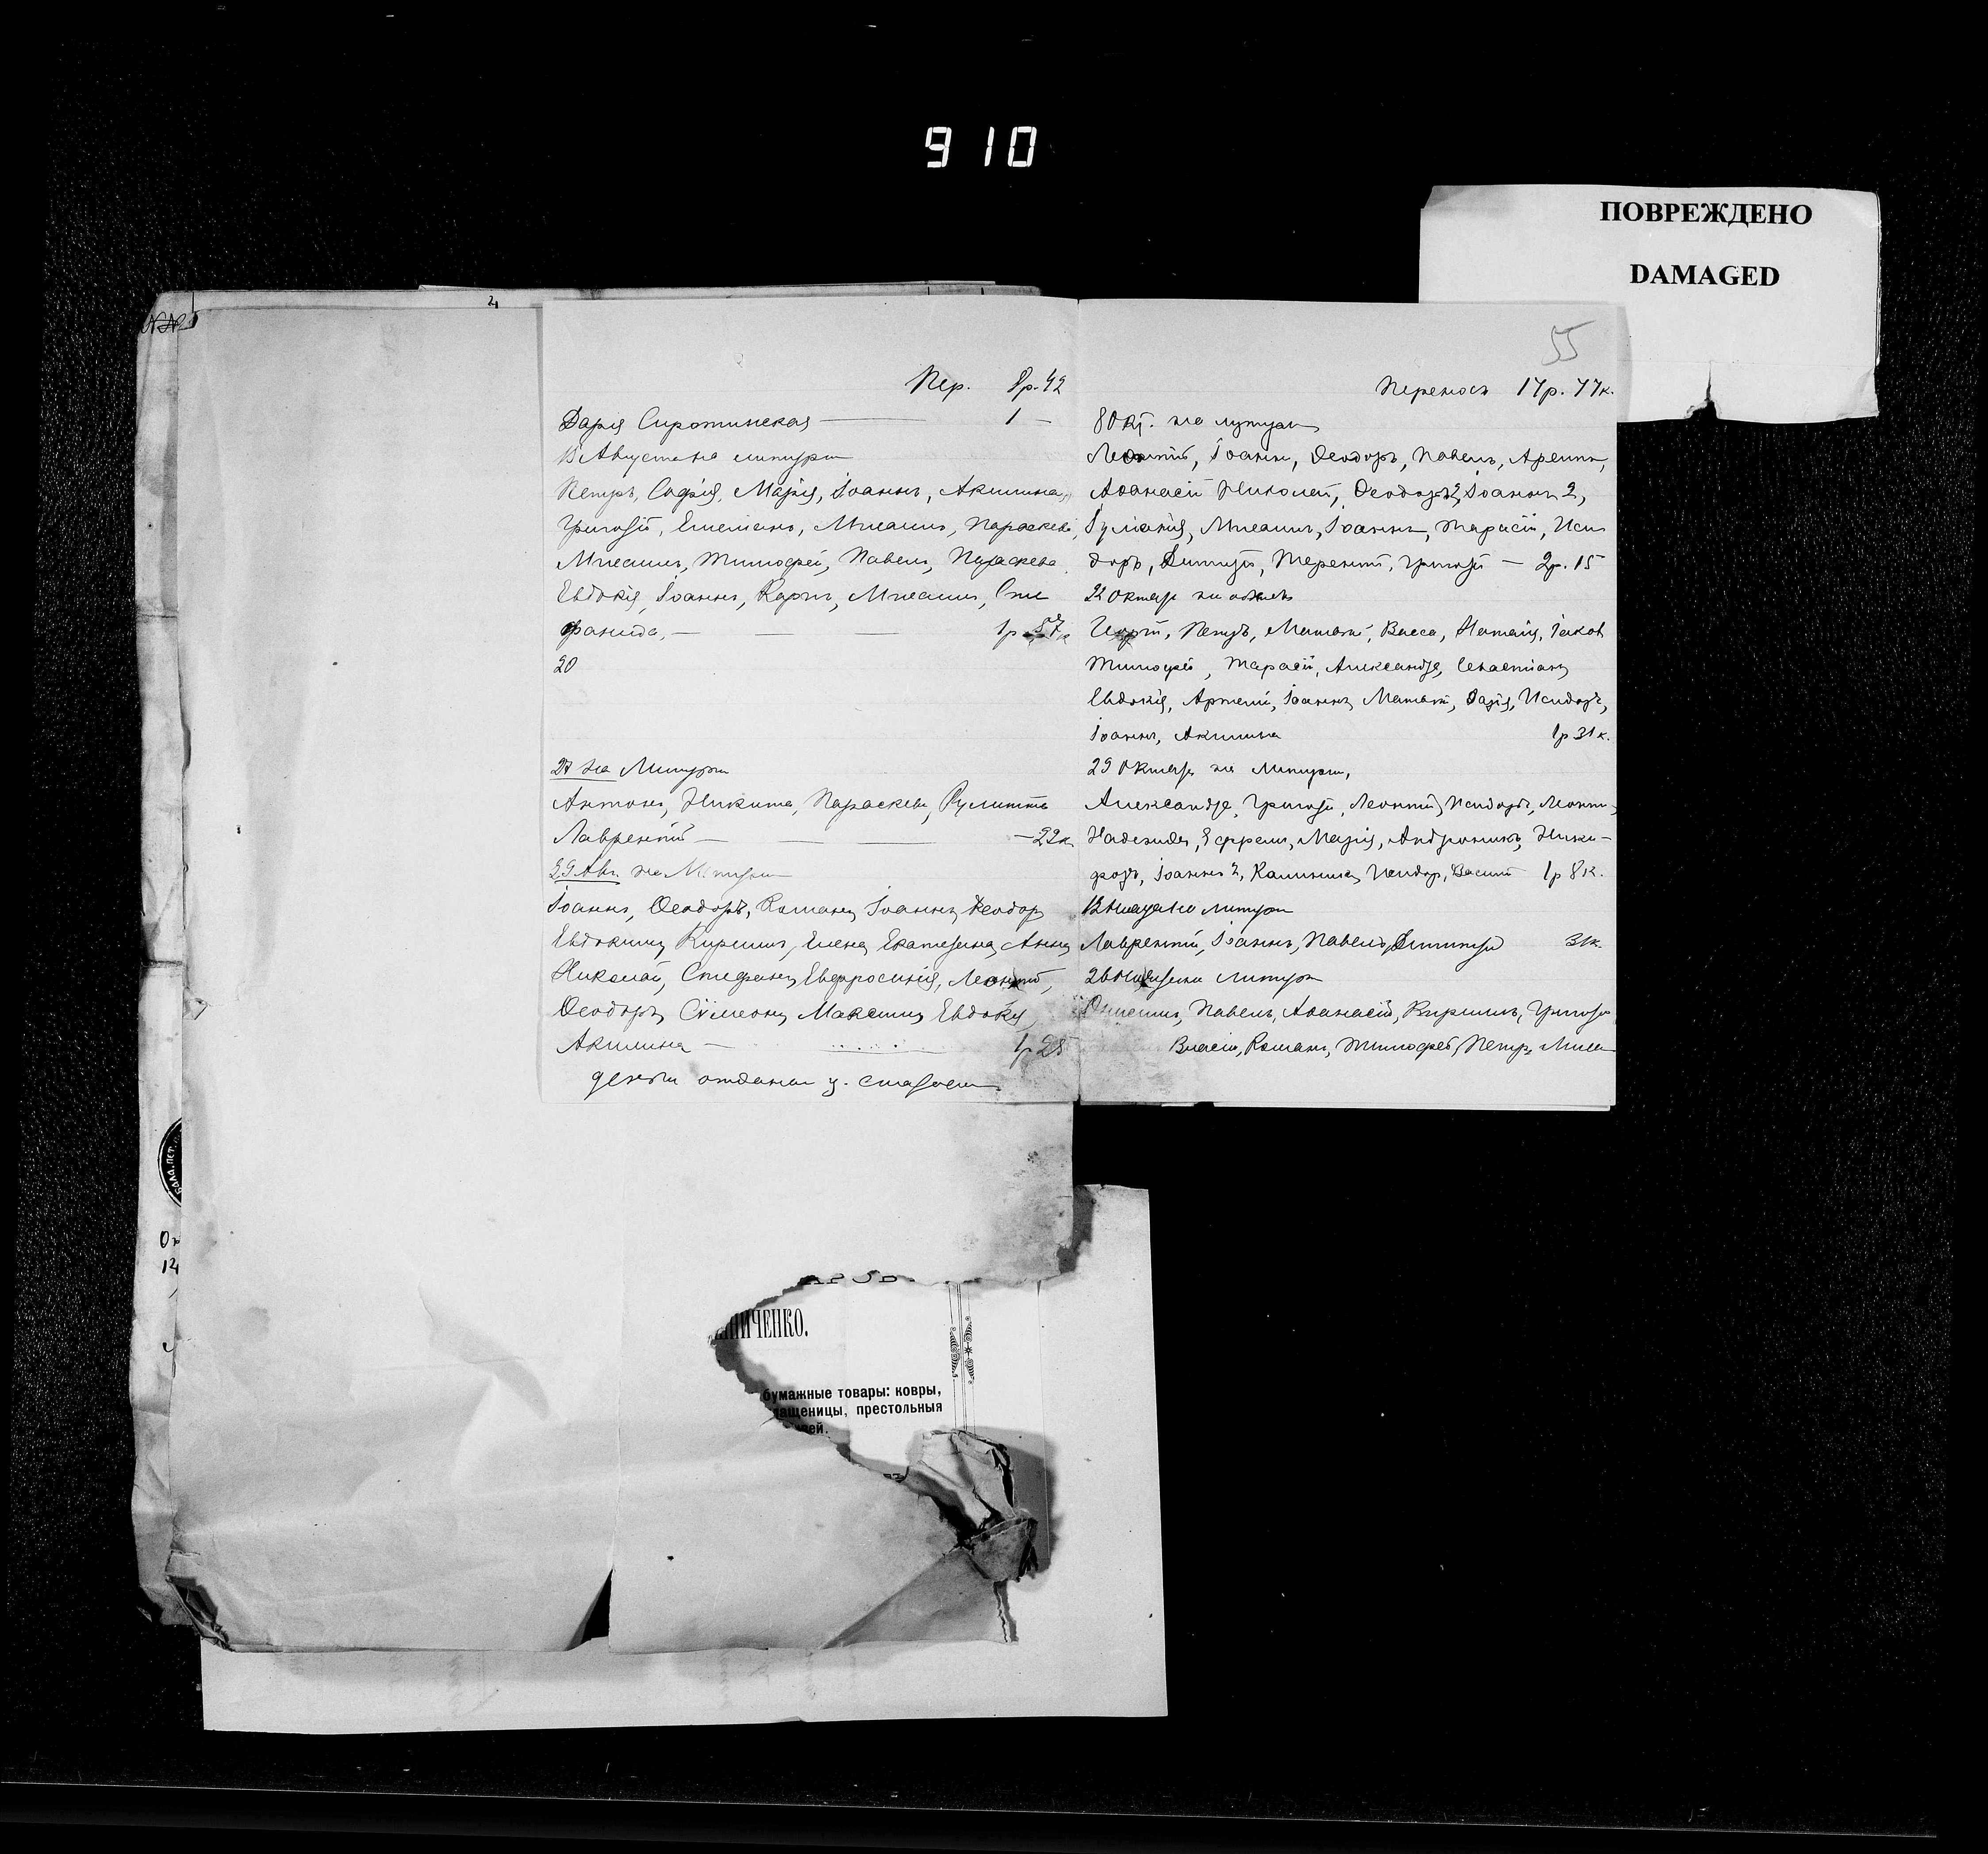 910
ПОВРЕЖДЕНО
DAMAGED
55
Пер. 8р. 42
Дарія Сиротинская — 1 —
Августа на литург
Петръ, Софія, Марія, Іоаннъ, Акилина,
Григорій, Емеліанъ, Михаилъ, Параскева,
Михаилъ, Тимофей, Павелъ, Параскева
Евдокія, Іоаннъ, Карпъ, Михаилъ, Сте
фанида, — — 1р 57к
20
27 на Литург
Антонъ, Никита, Параскева,
Лаврентій — — — 22к
29 Авг. на Литург
Іоаннъ, Ѳеодоръ, Романъ, Іоаннъ, Ѳеодоръ
Евдокимъ, Кириллъ, Елена, Екатерина, Анна,
Николай, Стефанъ, Евфросинія, Леонтій,
Ѳеодоръ, Сѵмеонъ, Максимъ, Евдокія,
Акилина — 1р 25
деньги отданы ц. старост
Переносъ 17р. 77к.
8 Окт. на литург
Леонтій, Іоаннъ, Ѳеодоръ, Павелъ,
Аѳанасій Николай, Ѳеодоръ 2, Іоаннъ 2,
Іуліанія, Михаилъ, Іоаннъ, Тарасій, Иси
доръ, Димитрій, Терентій, Григорій — 2р. 15
22 Октяб на
Георгій, Петръ, Матѳей, Васса, Наталія, Іаковъ
Тимофей, Тарасій, Александръ, Севастіанъ,
Евдокія, Артемій, Іоаннъ, Матѳей, Дарія, Исидоръ,
Іоаннъ, Акилина 1р 31к.
29 Октября на Литург,
Александръ, Григорій, Леонтій, Исидоръ, Леонт
Надежда, Ефремъ, Марія, Андроникъ, Ники-
форъ, Іоаннъ 2, Калинникъ, Исидор, Васил 1р 8к.
на литург
Лаврентій, Іоаннъ, Павелъ, Димитрій 31к.
26 литург
Павелъ, Аѳанасій, Кириллъ, Григорій
Власій, Романъ, Тимофей, Петръ, Миха
НИЧЕНКО.
бумажные товары: ковры,
лащеницы, престольныя